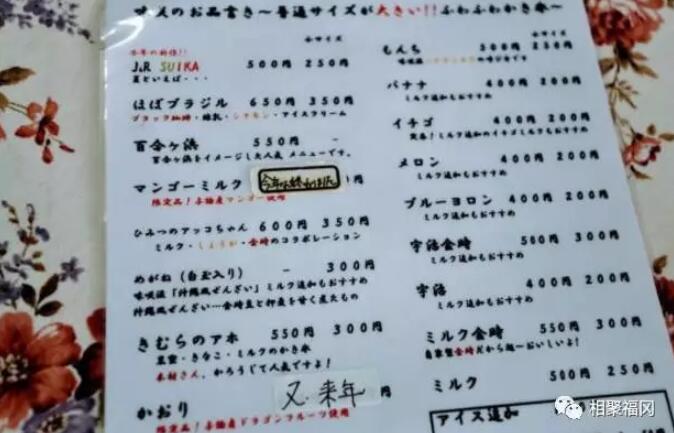 のお品書き〜普通サイズが大きい!!ふわふわかき氷〜
小サイズ
今年の新作!!
J&R SUIKA 500円 250円
夏といえば・・・
ほぼブラジル 650円 350円
ブラック珈琲・練乳・シナモン・アイスクリーム
百合ヶ浜 550円 -
百合ヶ浜をイメージした人気メニューです。
マンゴーミルク 今年は終わりました 円
限定品!与論産マンゴー使用
ひみつのアッコちゃん 600円 350円
ミルク・しょうが・金時のコラボレーション
めがね(白玉入り) - 300円
味咲波「沖縄風ぜんざい」ミルク追加もおすすめ
沖縄風ぜんざい…金時豆と押麦を甘く煮たもの
きむらのアホ 550円 300円
黒蜜・きなこ・ミルクのかき氷
木村さん、かろうじて人気ですよ!
かおり 又、来年 円
限定品!与論産ドラゴンフルーツ使用
小サイズ
もんち 500円 250円
バナナ 400円 200円
ミルク追加もおすすめ
イチゴ 400円 200円
定番!ミルク追加のイチゴミルクもおすすめ
メロン 400円 200円
ミルク追加もおすすめ
ブルーヨロン 400円 200円
ミルク追加もおすすめ
宇治金時 500円 300円
ミルク追加もおすすめ
宇治 400円 200円
ミルク追加もおすすめ
ミルク金時 550円 300円
自家製金時だから超〜おいしいよ!
ミルク 500円 250円
アイス追加
相聚福冈